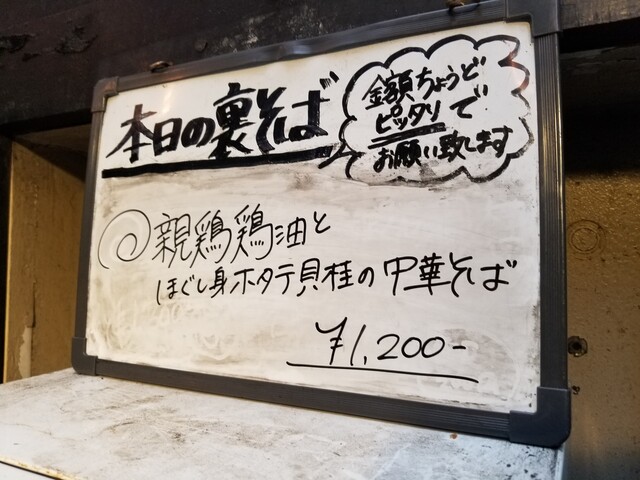 本日の裏そば
金額ちょうど
ピッタリで
お願い致します
親鶏鶏油と
ほぐし身ホタテ貝柱の中華そば
¥1,200-